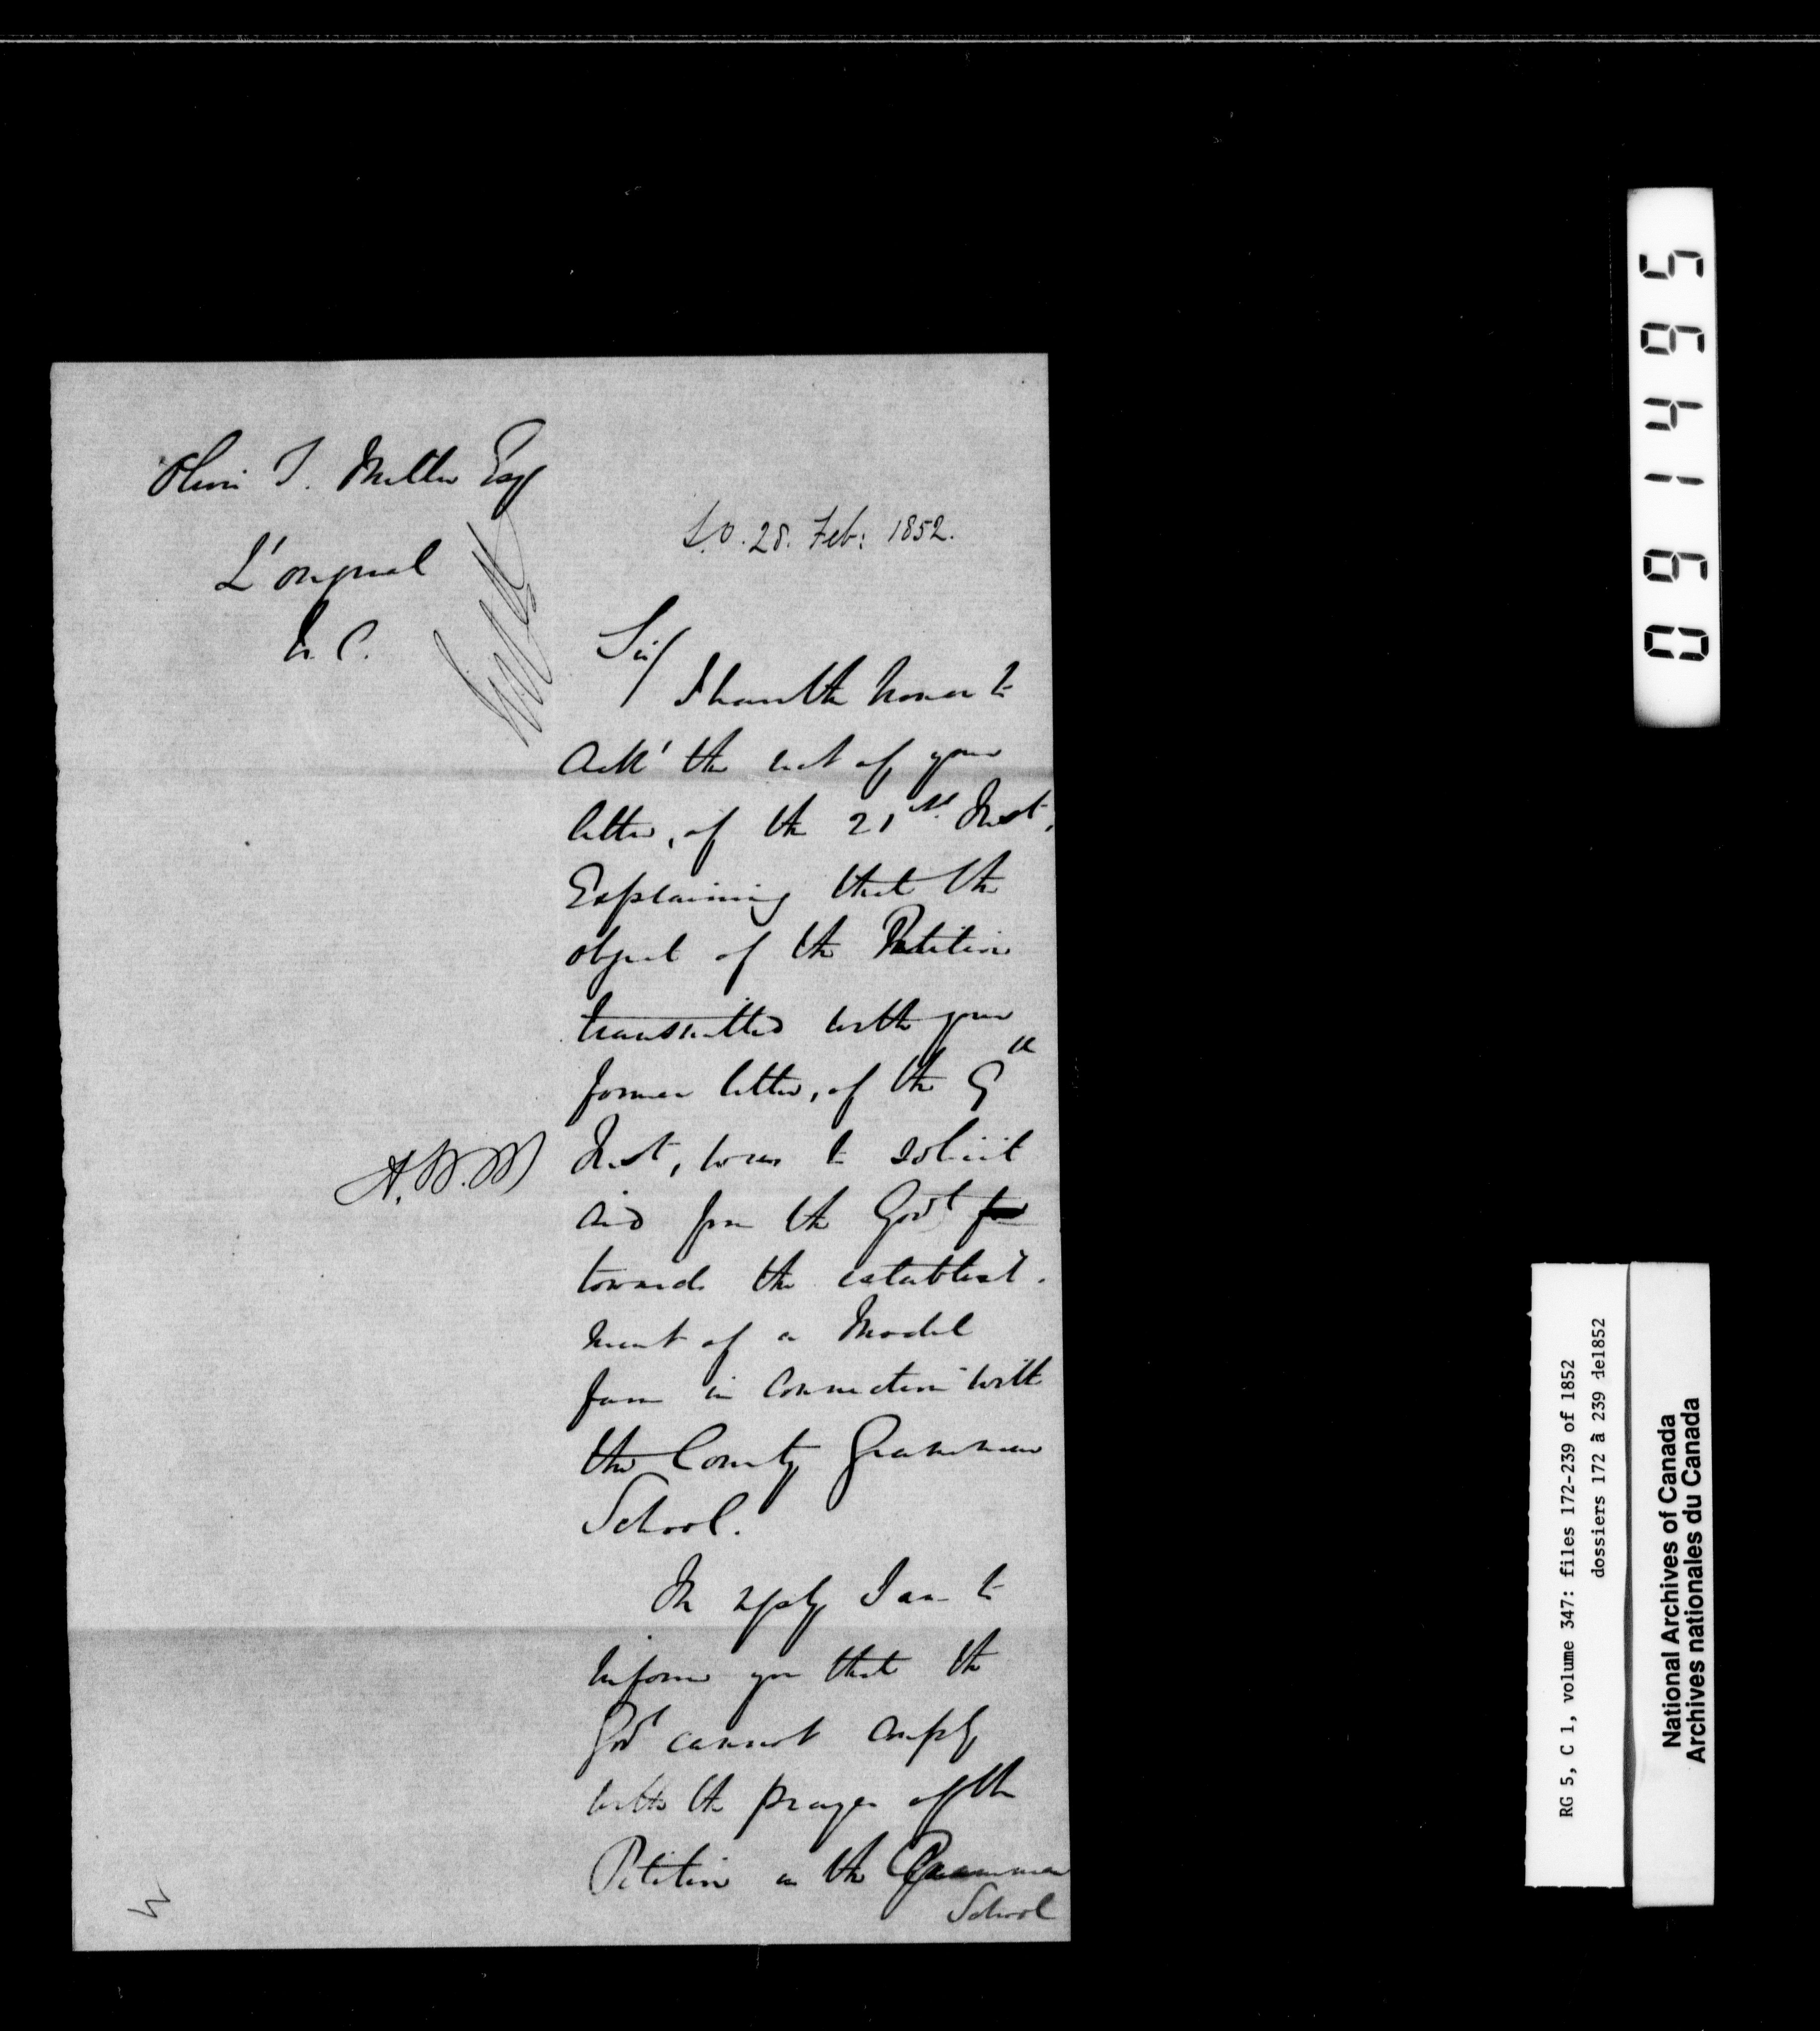 T. Miller Esq
L'orignal
U. C.
S.O. 28. Feb: 1852.
Sir/
I have the honor to
Ack' the rect of your
letter, of the 21st. Inst.
Explaining that the
object of the Petition
transmitted with your
former letter, of the 9th
Inst, was to solicit
aid from the Govt for
towards the establish-
ment of a Model
farm in connection with
the County Grammar
School.
In reply I am to
inform you that the
Govt cannot comply
with the prayer of the
Petition as the Grammar
School
5
6
4
1
6
0
RG 5, C 1, volume 347: files 172-239 of 1852
dossiers 172 à 239 de1852
National Archives of Canada
Archives nationales du Canada